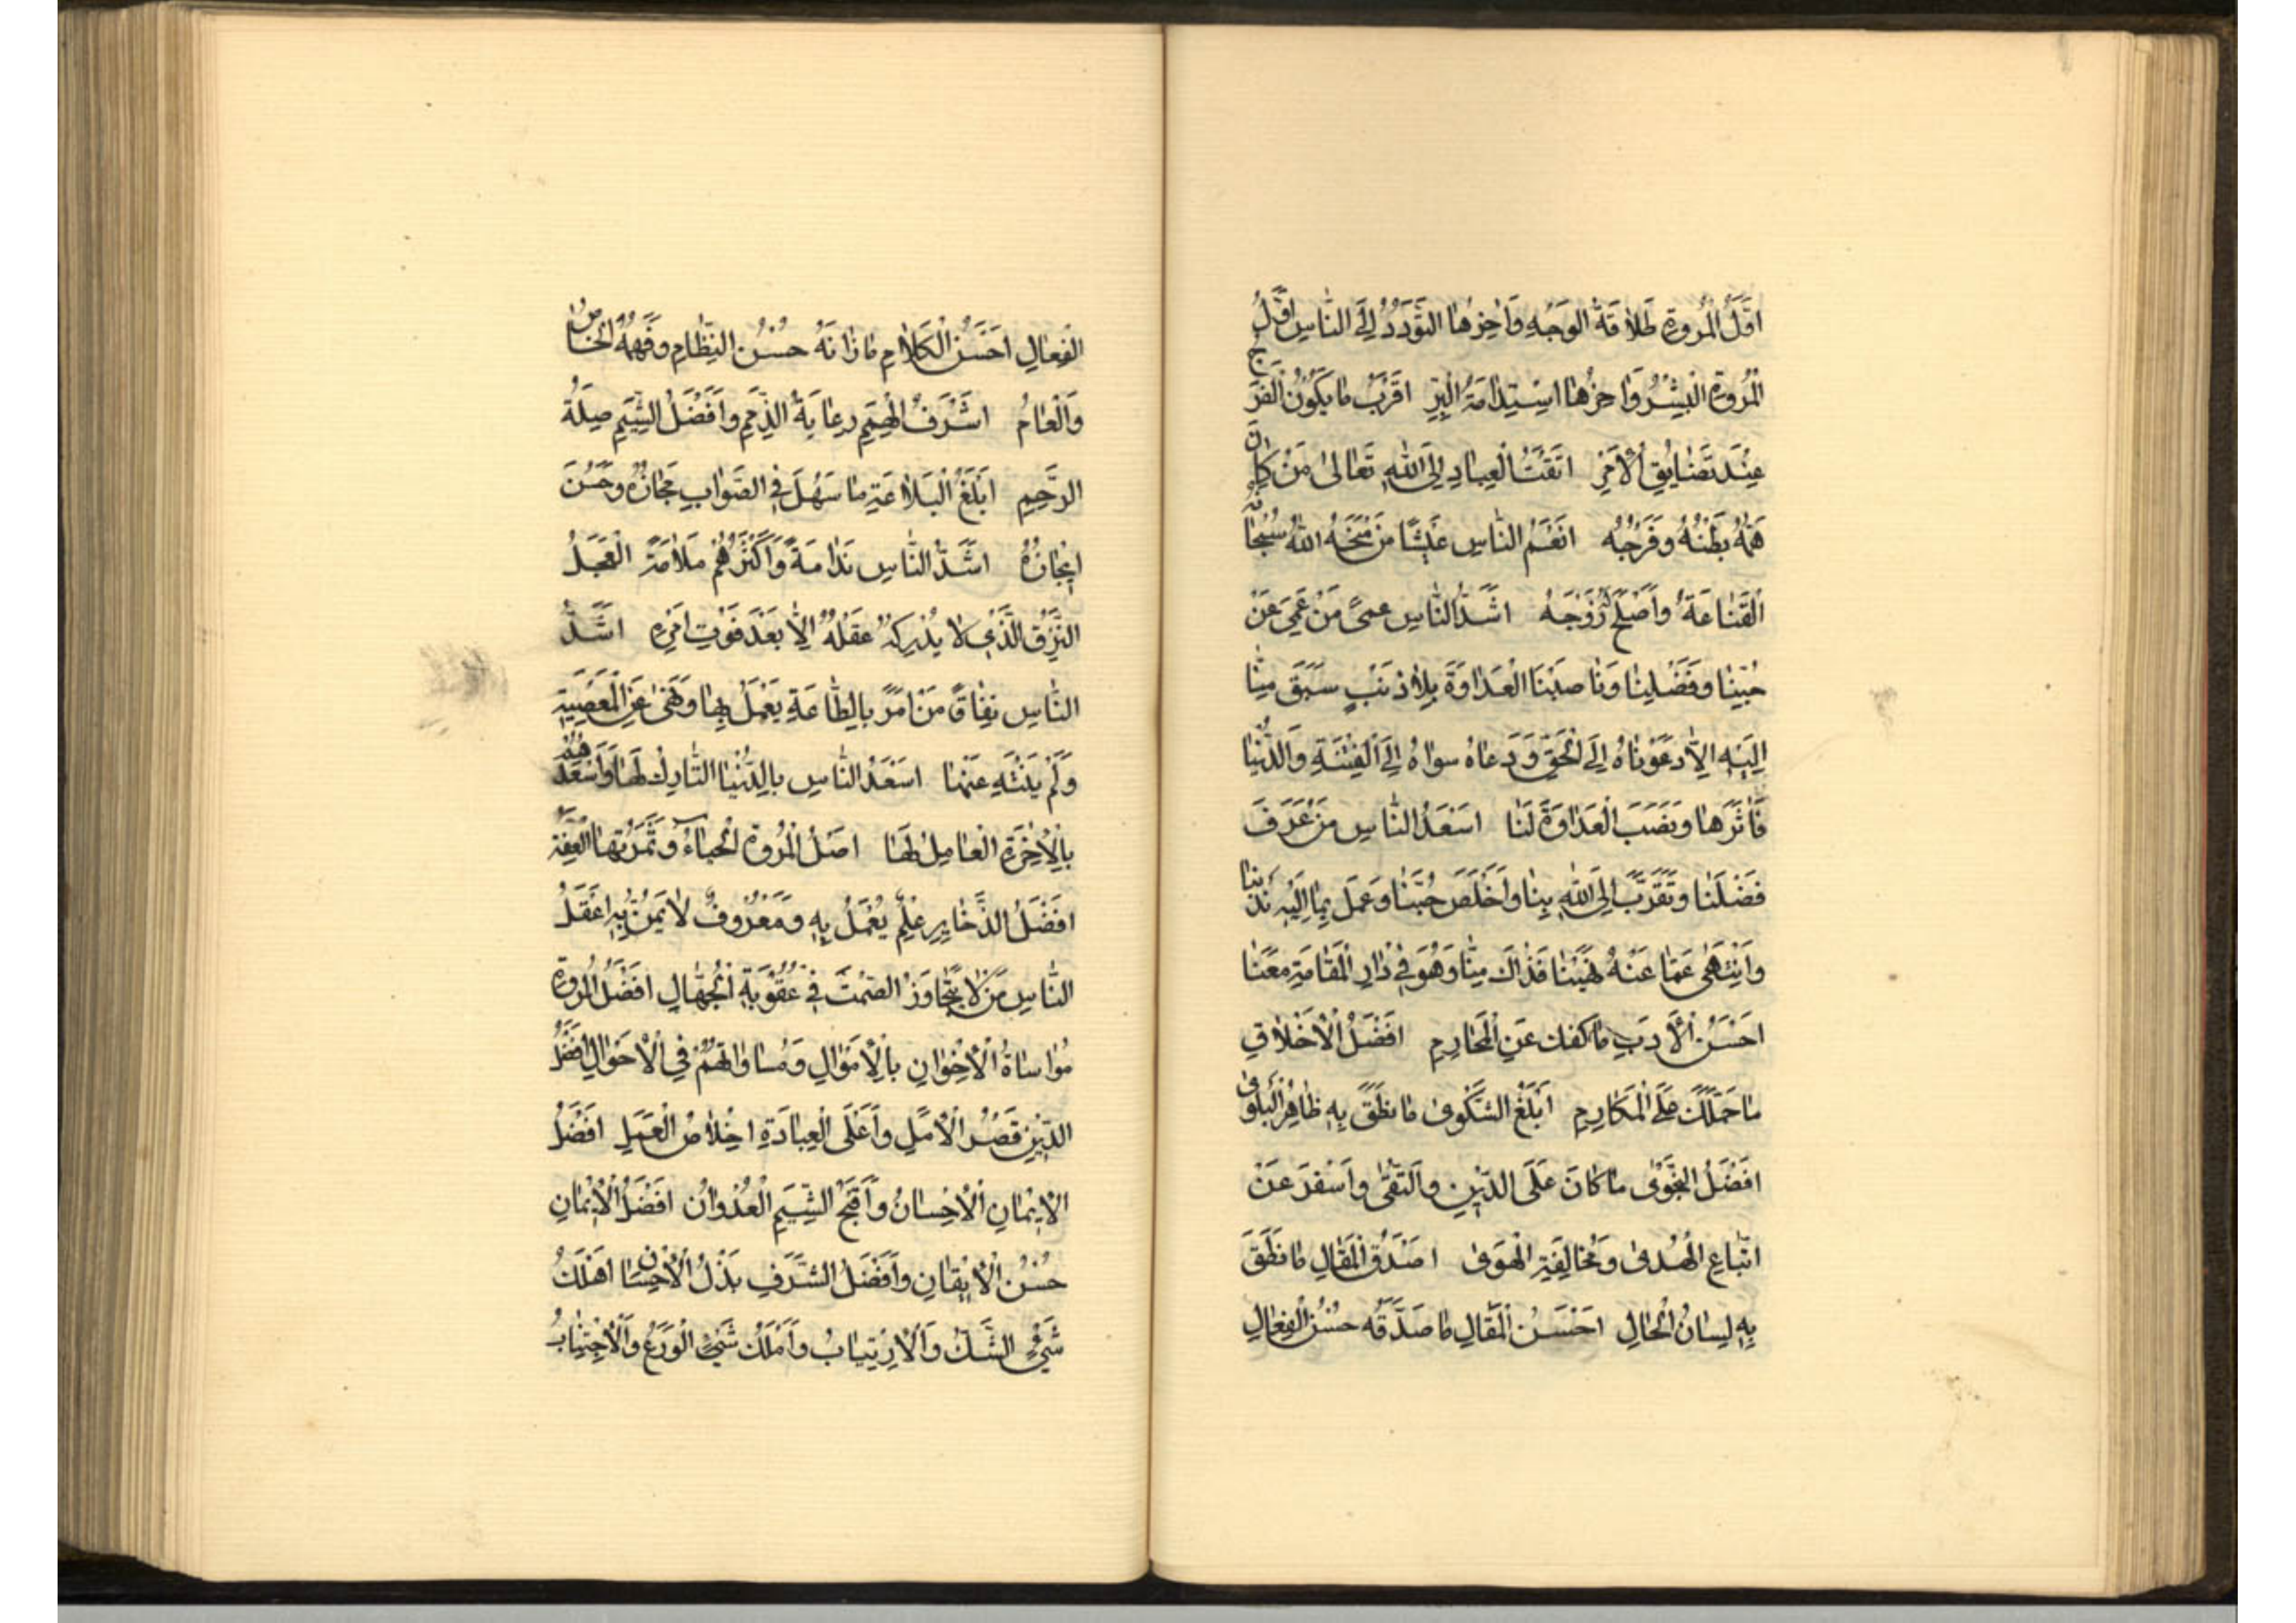 اَوَّلُ الْمُرُوَّةِ طَلاقَةُ الوَجْهِ وَآخِرُهَا التَّوَدُّدُ اِلَى النَّاسِ اَوَّلُ
الْمُرُوَّةِ الْبِشْرُ وَاٰخِرُهَا اسْتِدَامَةُ الْبِرِّ اَقْرَبُ مَا يَكُونُ الْفَرَجُ
عِنْدَ تَضَايُقِ الْاَمْرِ اَمْقَتُ الْعِبَادِ اِلَى اللّٰهِ تَعَالىٰ مَنْ كَانَ
هَمُّهُ بَطْنُهُ وَفَرْجُهُ اَنْعَمُ النَّاسِ عَيْشًا مَنْ مَنَحَهُ اللّٰهُ سُبْحَانَهُ
الْقَنَاعَةَ وَاَصْلَحَ لَهُ زَوْجَهُ اَشَدُّ النَّاسِ عمىً مَنْ عَمِيَ عَنْ
حُبِّنَا وَفَضْلِنَا وَنَاصَبَنَا الْعَدَاوَةَ بِلاٰ ذَنْبٍ سَبَقَ مِنَّا
اِلَيْهِ اِلاّٰ دَعَوْنَاهُ اِلَى الْحَقِّ وَدَعَاهُ سِوَاهُ اِلَى الْفِتْنَةِ وَالدُّنْيَا
فَاٰثَرَهَا وَنَصَبَ الْعَدَاوَةَ لَنَا اَسْعَدُ النَّاسِ مَنْ عَرَفَ
فَضْلَنَا وَتَقَرَّبَ اِلَى اللّٰهِ بِنَا وَاَخْلَصَ حُبَّنَا وَعَمِلَ بِمَا اِلَيْهِ نَدَبْنَا
وَانْتَهىٰ عَمَّا عَنْهُ نَهَيْنَا فَذَاكَ مِنَّا وَهُوَ فِي دَارِ الْمُقَامَةِ مَعَنَا
اَحْسَنُ الْاٰدَبِ مَا كَفَّكَ عَنِ الْمَحَارِمِ اَفْضَلُ الْاَخْلاٰقِ
مَا حَمَلَكَ عَلَى الْمَكَارِمِ اَبْلَغُ الشَّكْوىٰ مَا نَطَقَ بِهِ ظَاهِرُ الْبَلْوىٰ
اَفْضَلُ النَّجْوىٰ مَا كَانَ عَلَى الدِّينِ وَالتُّقىٰ وَاَسْفَرَ عَنْ
اتِّبَاعِ الْهُدىٰ وَمُخَالِفَةِ الْهَوىٰ اَصْدَقُ الْمَقَالِ مَا نَطَقَ
بِهِ لِسَانُ الْحَالِ اَحْسَنُ الْمَقَالِ مَا صَدَّقَهُ حُسْنُ الْفِعَالِ
الْفِعَالِ اَحْسَنُ الْكَلاٰمِ مَا زَانَهُ حُسْنُ النِّظَامِ وَفَهِمَهُ الْخَاصُّ
وَالْعَامُّ اَشْرَفُ الْهِمَمِ رِعَايَةُ الذِّمَمِ وَاَفْضَلُ الشِّيَمِ صِلَةُ
الرَّحِمِ اَبْلَغُ الْبَلاٰغَةِ مَا سَهُلَ فِي الصَّوَابِ مَجَازُهُ وَحَسُنَ
اِيْجَازُهُ اَشَدُّ النَّاسِ نَدَامَةً وَاَكْثَرُهُمْ مَلاٰمَةً الْعَجِلُ
النَّزِقُ الَّذِي لاٰ يُدْرِكُهُ عَقْلُهُ اِلاّٰ بَعْدَ فَوْتِ اَمْرِهِ اَشَدُّ
النَّاسِ نِفَاقًا مَنْ اَمَرَ بِالطَّاعَةِ يَعْمَلُ بِهَا وَنَهىٰ عَنِ الْمَعْصِيَةِ
وَلَمْ يَنْتَهِ عَنْهَا اَسْعَدُ النَّاسِ بِالدُّنْيَا التَّارِكُ لَهَا وَاَسْعَدُهُمْ
بِالْاٰخِرَةِ الْعَامِلُ لَهَا اَصْلُ الْمُرُوَّةِ الْحَيَاءُ وَثَمَرَتُهَا الْعِفَّةُ
اَفْضَلُ الذَّخَايِرِ عِلْمٌ يُعْمَلُ بِهِ وَمَعْرُوفٌ لاٰ يَمُنُّ بِهِ اَعْقَلُ
النَّاسِ مَنْ لاٰ يَتَجَاوَزُ الصَّمْتَ فِي عُقُوبَةِ الْجُهَّالِ اَفْضَلُ الْمُرُوَّةِ
مُوَاسَاةُ الْاِخْوَانِ بِالْاَمْوَالِ وَمُسَاوَاتُهُمْ فِي الْاَحْوَالِ اَفْضَلُ
الدِّيْنِ قَصْرُ الْاَمَلِ وَاَعْلَى الْعِبَادَةِ اِخْلاٰصُ الْعَمَلِ اَفْضَلُ
الْاِيْمَانِ الْاِحْسَانُ وَاَقْبَحُ الشِّيَمِ الْعُدْوَانُ اَفْضَلُ الْاِيْمَانِ
حُسْنُ الْاِيْقَانِ وَاَفْضَلُ الشَّرَفِ بَذْلُ الْاِحْسَانِ اَهْلَكُ
شَيْءٍ الشَّكُّ وَالْاِرْتِيَابُ وَاَمْلَكُ شَيْءٍ الْوَرَعُ وَالْاِجْتِنَابُ